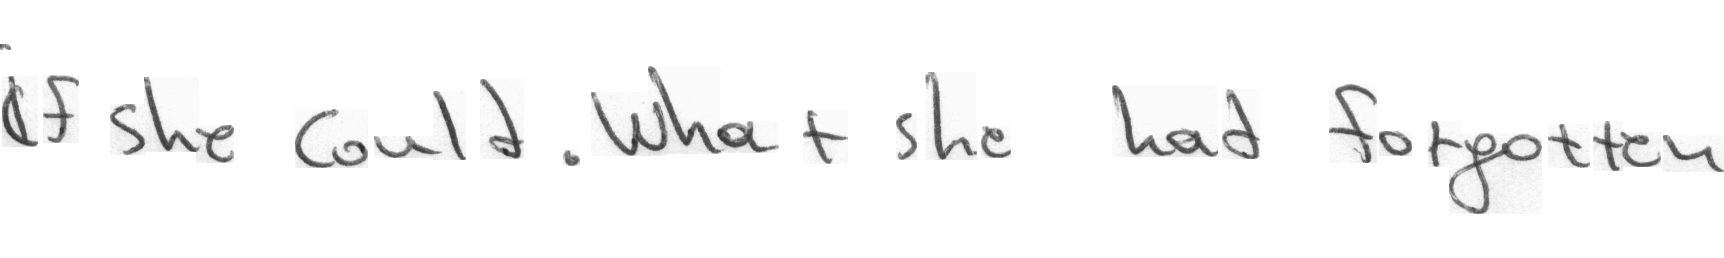 If she could. What she had forgotten